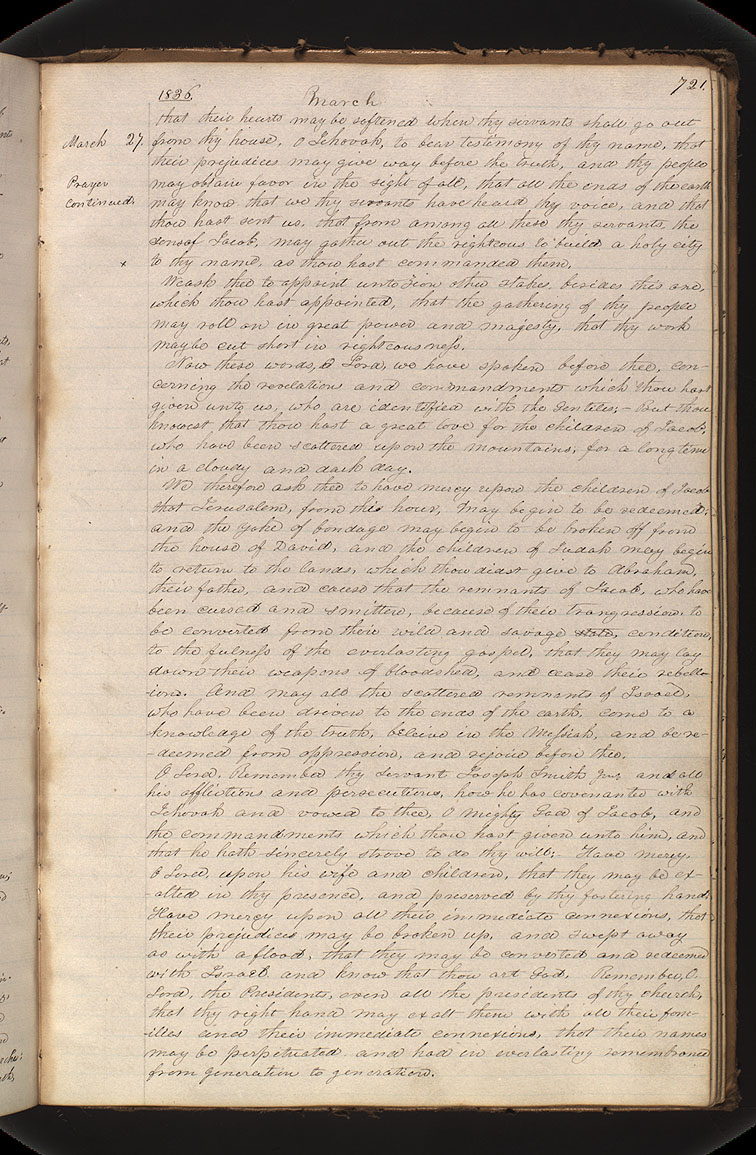 1836.
March
721.
that their hearts may be softened when thy servants shall go out
March 27. from thy house, O Jehovah, to bear testimony of thy name, that
their prejudices may give way before the truth, and thy people
Prayer may obtain favor in the sight of all, that all the ends of the earth
continued. may know that we thy servants have heard thy voice, and that
thou hast sent us, that from among all these thy servants the
sons of Jacob, may gather out the righteous to build a holy city
x to thy name, as thou hast commanded them.
We ask thee to appoint unto Zion other stakes besides this one,
which thou hast appointed, that the gathering of thy people
may roll on in great power and magesty, that thy work
may be cut short in righteousness.
Now these words, O Lord, we have spoken before thee, con-
cerning the revelation and commandments which thou hast
given unto us, who are identified with the Gentiles;– But thou
knowest that thou hast a great love for the children of Jacob,
who have been scattered upon the mountains, for a long time
in a cloudy and dark day.
We therefore ask thee to have mercy upon the children of Jacob
that Jerusalem, from this hour, may begin to be redeemed;
and the yoke of bondage may begin to be broken off from
the house of David, and the children of Judah may begin
to return to the lands, which thou didst give to Abraham,
their father, and cause that the remnants of Jacob, who have
been cursed and smitten, because of their trangression, to
be converted from their wild and savage state, condition,
to the fulness of the everlasting gospel, that they may lay
down their weapons of bloodshed, and cease their rebell-
ions. And may all the scattered remnants of Israel,
who have been driven to the ends of the earth, come to a
knowledge of the truth, beleive in the Messiah, and be re-
-deemed from oppression, and rejoice before thee.
O Lord, Remember thy servant Joseph Smith Jur and all
his afflictions and persecutions, how he has covenanted with
Jehovah and vowed to thee, O Mighty God of Jacob, and
the commandments which thou hast given unto him, and
that he hath sincerely strove to do thy will; Have mercy,
O Lord, upon his wife and children, that they may be ex-
-alted in thy presence, and preserved by thy fostering hand.
Have mercy upon all their immediate connexions, that
their prejudices may be broken up, and swept away
as with a flood, that they may be converted and redeemed
with Israel and know that thou art God. Remember, O
Lord, the Presidents, even all the presidents of thy church,
that thy right hand may exalt them with all their fam-
ilies and their immediate connexions, that their names
may be perpetuated and had in everlasting remembrance
from generation to generation.